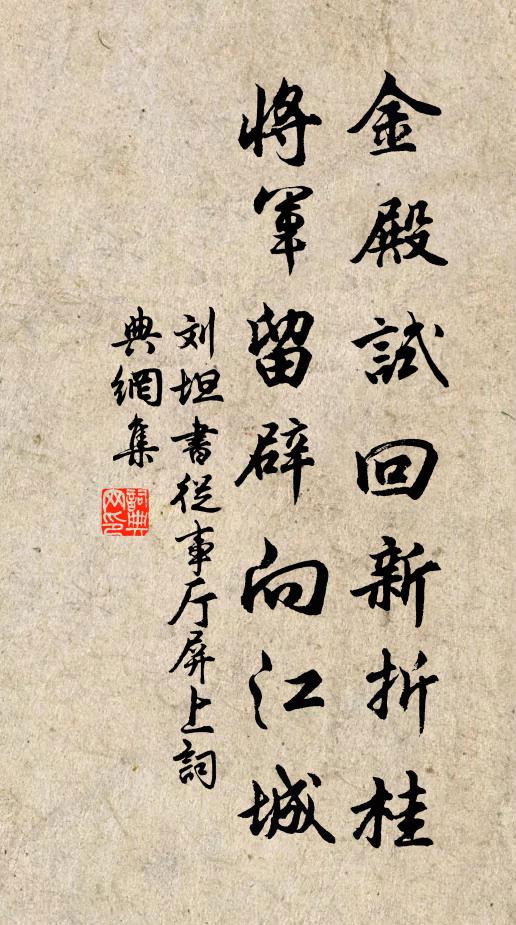 金殿試回新折桂
將軍留辟向江城
刘坦書從事厅屏上詞
典網集
詞典
网印